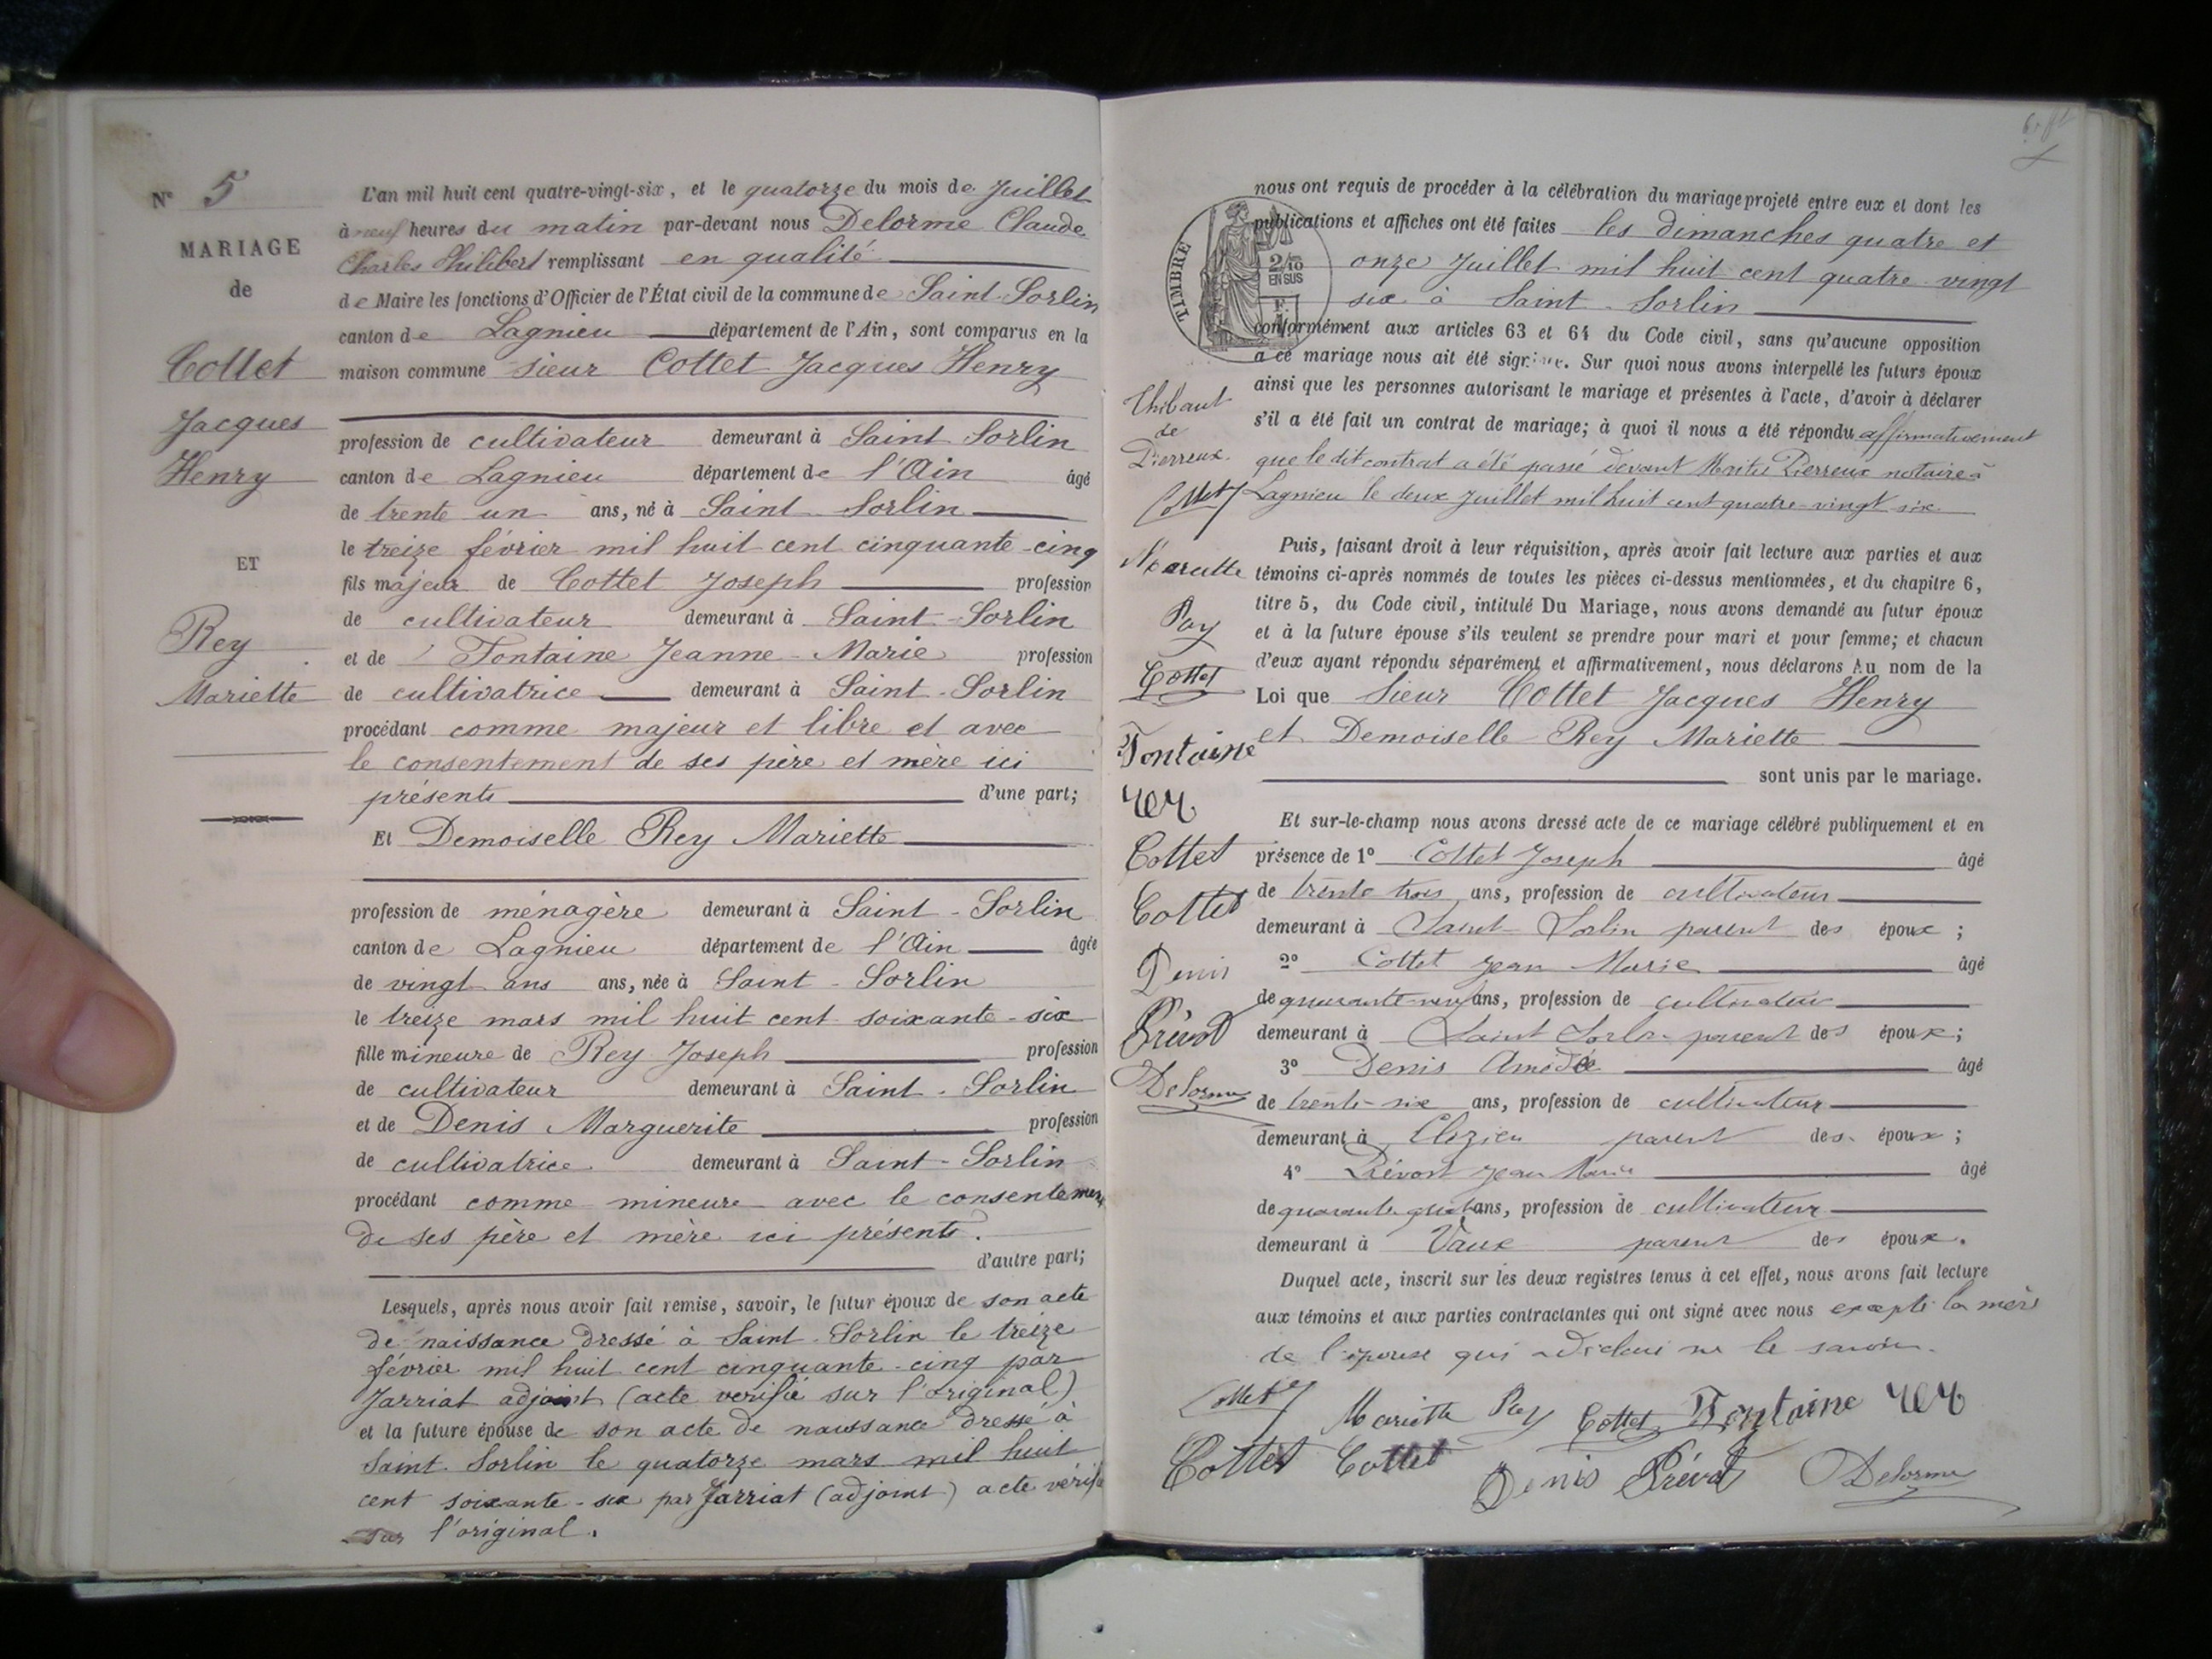 N° 5
MARIAGE
de
Cottet
Jacques
Henry
ET
Rey
Mariette
L'an mil huit cent quatre-vingt-six, et le quatorze du mois de Juillet
à neuf heures du matin par-devant nous Delorme Claude
Charles Philibert remplissant en qualité
de Maire les fonctions d'Officier de l'État civil de la commune de Saint-Sorlin
canton de Lagnieu département de l'Ain, sont comparus en la
maison commune sieur Cottet Jacques Henry
profession de cultivateur demeurant à Saint Sorlin
canton de Lagnieu département de l'Ain âgé
de trente un ans, né à Saint-Sorlin
le treize février mil huit cent cinquante-cinq
fils majeur de Cottet Joseph profession
de cultivateur demeurant à Saint-Sorlin
et de Fontaine Jeanne-Marie profession
de cultivatrice demeurant à Saint-Sorlin
procédant comme majeur et libre et avec
le consentement de ses père et mère ici
présents d'une part;
Et Demoiselle Rey Mariette
profession de ménagère demeurant à Saint-Sorlin
canton de Lagnieu département de l'Ain âgée
de vingt ans ans, née à Saint-Sorlin
le treize mars mil huit cent soixante-six
fille mineure de Rey Joseph profession
de cultivateur demeurant à Saint-Sorlin
et de Denis Marguerite profession
de cultivatrice demeurant à Saint-Sorlin
procédant comme mineure avec le consentement
de ses père et mère ici présents.
d'autre part;
Lesquels, après nous avoir fait remise, savoir, le futur époux de son acte
de naissance dressé à Saint-Sorlin le treize
février mil huit cent cinquante-cinq par
Jarriat adjoint (acte verifié sur l'original)
et la future épouse de son acte de naissance dressé à
Saint-Sorlin le quatorze mars mil huit
cent soixante-six par Jarriat (adjoint) acte vérifié
sur l'original.
TIMBRE
2/10
EN SUS
nous ont requis de procéder à la célébration du mariage projeté entre eux et dont les
publications et affiches ont été faites les dimanches quatre et
onze Juillet mil huit cent quatre-vingt
six à Saint-Sorlin
conformément aux articles 63 et 64 du Code civil, sans qu'aucune opposition
à ce mariage nous ait été signifiée. Sur quoi nous avons interpellé les futurs époux
ainsi que les personnes autorisant le mariage et présentes à l'acte, d'avoir à déclarer
s'il a été fait un contrat de mariage; à quoi il nous a été répondu affirmativement
que le dit contrat a été passé devant Maitre Pierreux notaire à
Lagnieu le deux Juillet mil huit cent quatre-vingt-six
Puis, faisant droit à leur réquisition, après avoir fait lecture aux parties et aux
témoins ci-après nommés de toutes les pièces ci-dessus mentionnées, et du chapitre 6,
titre 5, du Code civil, intitulé Du Mariage, nous avons demandé au futur époux
et à la future épouse s'ils veulent se prendre pour mari et pour femme; et chacun
d'eux ayant répondu séparément et affirmativement, nous déclarons Au nom de la
Loi que Sieur Cottet Jacques Henry
et Demoiselle Rey Mariette
sont unis par le mariage.
Et sur-le-champ nous avons dressé acte de ce mariage célébré publiquement et en
présence de 1° Cottet Joseph âgé
de trente trois ans, profession de cultivateur
demeurant à Saint-Sorlin parent des époux;
2° Cottet Jean Marie âgé
de quarante-neuf ans, profession de cultivateur
demeurant à Saint Sorlin parent des époux;
3° Denis Amédée âgé
de trente-six ans, profession de cultivateur
demeurant à parent des époux;
4° Prévost Jean Marie âgé
de quarante ans, profession de cultivateur
demeurant à Vaux parent des époux.
Duquel acte, inscrit sur les deux registres tenus à cet effet, nous avons fait lecture
aux témoins et aux parties contractantes qui ont signé avec nous excepté la mère
de l'épouse qui a déclaré ne le savoir.
Cottet Mariette Rey Cottet Fontaine
Cottet Cottet Denis Prévot Delorme
Thibaut
de
Pierreux
Cottet
Mariette
Rey
Cottet
Fontaine
Cottet
Cottet
Denis
Prévot
Delorme